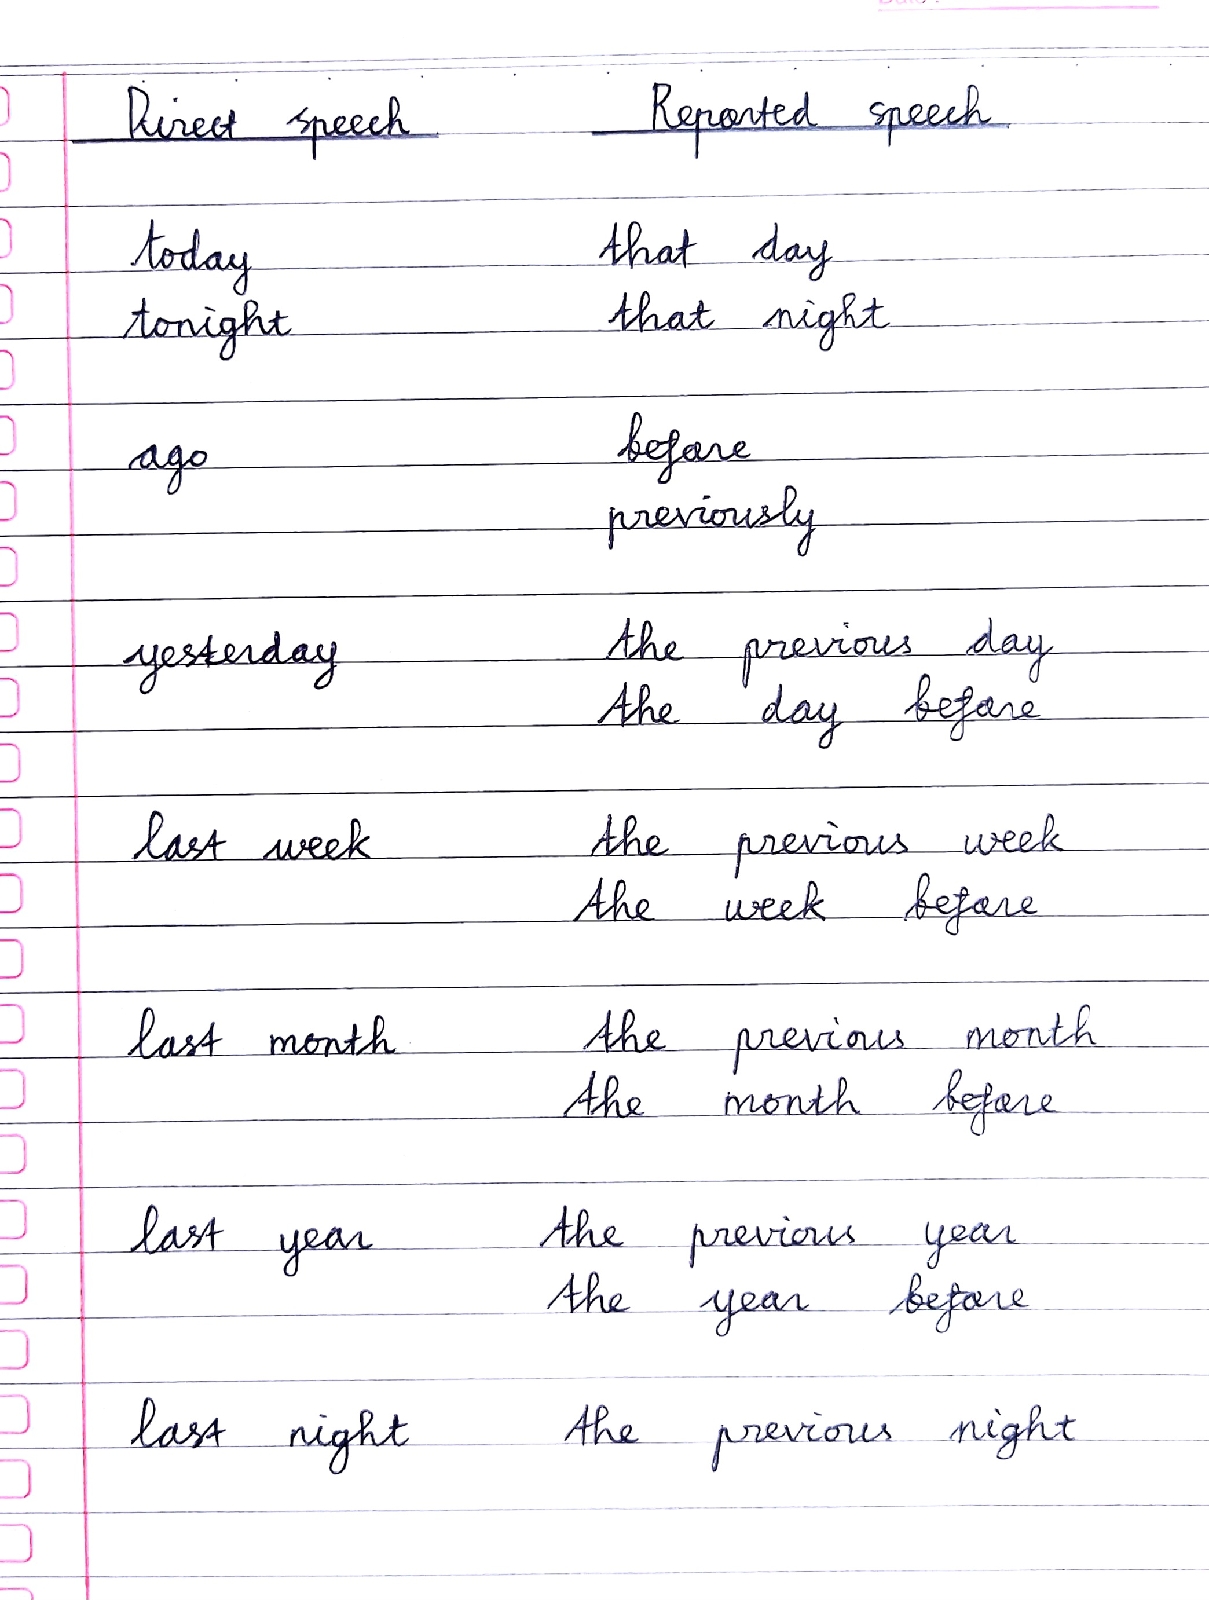 Direct speech Reported speech
today that day
tonight that night
ago before
previously
yesterday the previous day
the day before
last week the previous week
the week before
last month the previous month
the month before
last year the previous year
the year before
last night the previous night